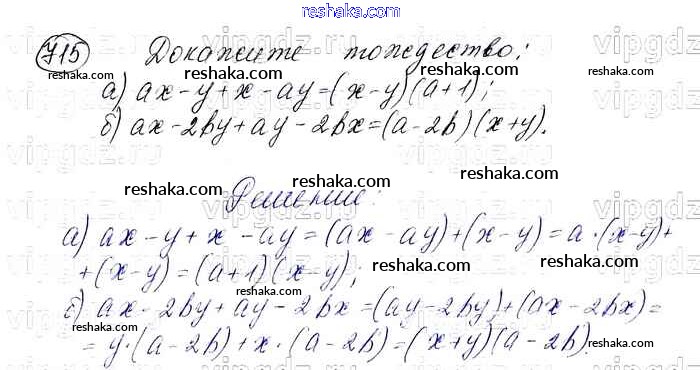 reshaka.com
715 Докажите тождество:
reshaka.com reshaka.com
а) ax - y + x - ay = (x - y)(a + 1);
б) ax - 2by + ay - 2bx = (a - 2b)(x + y).
reshaka.com reshaka.com
reshaka.com
Решение:
reshaka.com
а) ax - y + x - ay = (ax - ay) + (x - y) = a · (x - y) +
reshaka.com
+ (x - y) = (a + 1)(x - y);
reshaka.com reshaka.com
б) ax - 2by + ay - 2bx = (ay - 2by) + (ax - 2bx) =
reshaka.com
= y · (a - 2b) + x · (a - 2b) = (x + y)(a - 2b).
reshaka.com reshaka.com
reshaka.com